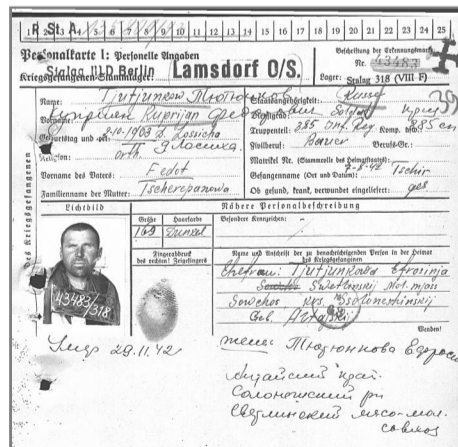 R. St. A. 1 2 3 4 5 6 7 8 9 10 11 12 13 14 15 16 17 18 19 20 21 22 23 24 25
Personalkarte I: Personelle Angaben
Kriegsgefangenen-Stammlager: Stalag III D Berlin Lamsdorf O/S.
Beschriftung der Erkennungsmarke
Nr. 43483
Lager: Stalag 318 (VIII F)
Des Kriegsgefangenen
Name: Tjutjunkow Тютюнков
Vorname: Kuprijan
Geburtstag und -ort: 2.10.1903
Religion: Orth.
Vorname des Vaters: Fedot
Familienname der Mutter: Tscherepanowa
Staatsangehörigkeit: Russe
39
Dienstgrad: Soldat
Truppenteil: 385 Inf. Reg. Komp. usw.:
Zivilberuf: Bauer Berufs-Gr.:
Matrikel Nr. (Stammrolle des Heimatstaates):
Gefangennahme (Ort und Datum): Tschir
Ob gesund, krank, verwundet eingeliefert: ges
Lichtbild
43483
318
Nähere Personalbeschreibung
Größe Haarfarbe Besondere Kennzeichen: -
169 Dunkel
Fingerabdruck
des rechten! Zeigefingers
Name und Anschrift der zu benachrichtigenden Person in der Heimat
des Kriegsgefangenen
Ehefrau: Tjutjunkowa Efrosinja
Swetlinskij
Sowchos,
Geb.
Wenden!
Умер 29.11.42
жена: Тютюнкова
Алтайский край
Солонешинский рн
Светлинский мясо-мол.
совхоз